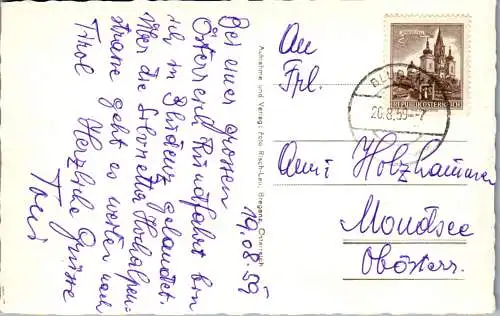 19.08.59
Bei einer grossen
Österreich Rundfahrt bin
ich in Bludenz gelandet.
Über die Silvretta Hochalpen-
strasse geht es weiter nach
Tirol Herzliche Grüsse
Toni
Aufnahme und Verlag: Foto Risch-Lau, Bregenz, Österreich
An
Frl.
Anni Holzhammer
Mondsee
Obösterr.
REPUBLIK ÖSTERREICH
20.8.59